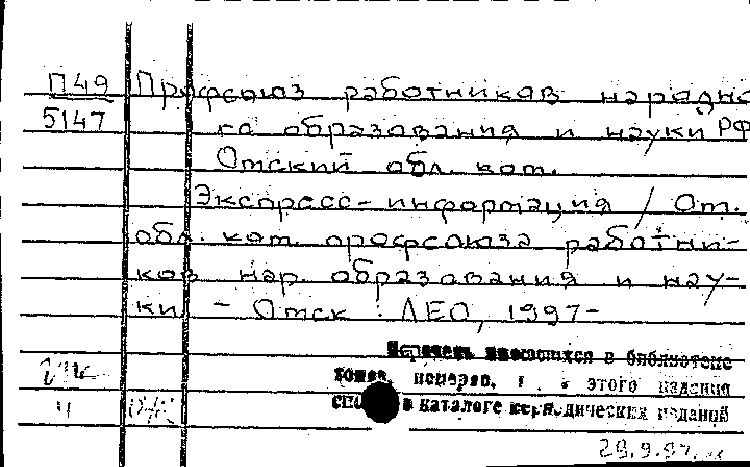 П49 Профсоюз работников народно-
5147 го образования и науки РФ
Омский обл. ком.
Экспресс-информация / Ом.
обл. ком. профсоюза работни-
ков нар. образования и нау-
ки. - Омск : ЛЕО, 1997-
Перечень имеющихся в библиотеке
томов, номеров, г. этого издания
в каталоге периодических изданий
Ч
29.9.97.